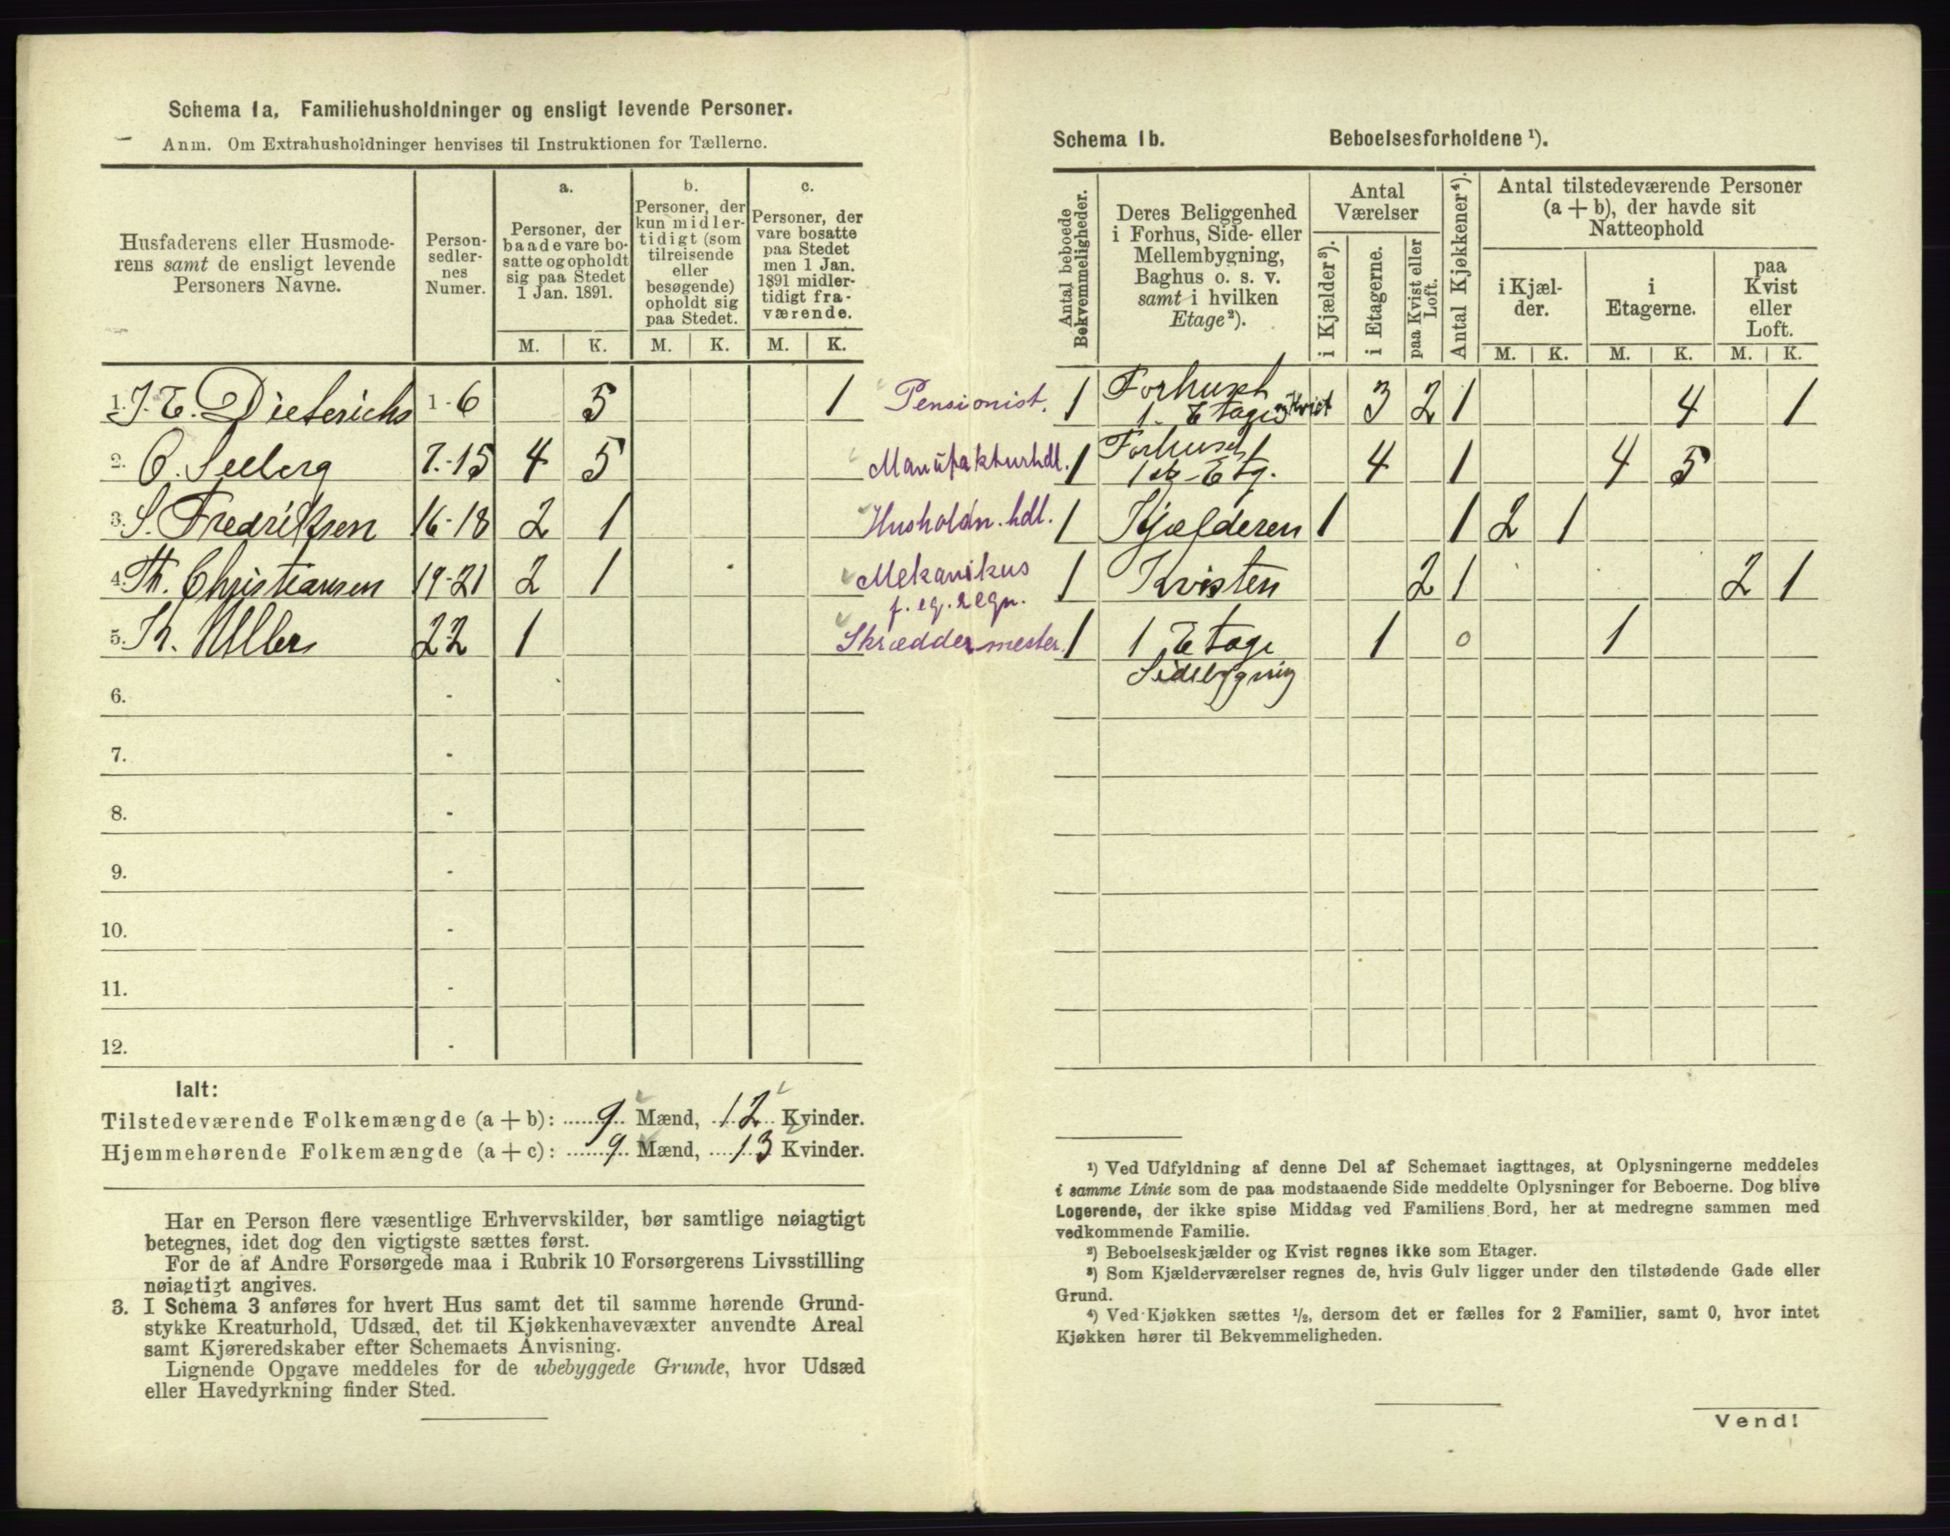 Schema 1a. Familiehusholdninger og ensligt levende Personer.
Anm. Om Extrahusholdninger henvises til Instruktionen for Tællerne.
Husfaderens eller Husmode-
rens samt de ensligt levende
Personers Navne.
Person-
sedler-
nes
Numer.
a.
Personer, der
baade vare bo-
satte og opholdt
sig paa Stedet
1 Jan. 1891.
b.
Personer, der
kun midler-
tidigt (som
tilreisende
eller
besøgende)
opholdt sig
paa Stedet.
c.
Personer, der
vare bosatte
paa Stedet
men 1 Jan.
1891 midler-
tidigt fra-
værende.
M. K. M. K. M. K.
1. J. E. Dieterichs 1-6 5 1 Pensionist.
2. O. Seeberg 7.-15 4 5 Manufakturhdl.
3. S. Fredriksen 16-18 2 1 Husholdn. hdl.
4. Th. Christiansen 19-21 2 1 Mekanikus
f. eg. regn.
5. Th. Uller 22 1 Skræddermester.
6. -
7. -
8. -
9. -
10. -
11. -
12. -
Ialt:
Tilstedeværende Folkemængde (a + b): 9 Mænd, 12 Kvinder.
Hjemmehørende Folkemængde (a + c): 9 Mænd, 13 Kvinder.
Har en Person flere væsentlige Erhvervskilder, bør samtlige nøiagtigt
betegnes, idet dog den vigtigste sættes først.
For de af Andre Forsørgede maa i Rubrik 10 Forsørgerens Livsstilling
nøiagtigt angives.
3. I Schema 3 anføres for hvert Hus samt det til samme hørende Grund-
stykke Kreaturhold, Udsæd, det til Kjøkkenhavevæxter anvendte Areal
samt Kjøreredskaber efter Schemaets Anvisning.
Lignende Opgave meddeles for de ubebyggede Grunde, hvor Udsæd
eller Havedyrkning finder Sted.
Schema 1b. Beboelsesforholdene ¹).
Antal beboede
Bekvemmeligheder.
Deres Beliggenhed
i Forhus, Side- eller
Mellembygning,
Baghus o. s. v.
samt i hvilken
Etage²).
Antal
Værelser
i Kjælder³).
i Etagerne.
paa Kvist eller
Loft.
Antal Kjøkkener⁴).
Antal tilstedeværende Personer
(a + b), der havde sit
Natteophold
i Kjæl-
der.
i
Etagerne.
paa
Kvist
eller
Loft.
M. K. M. K. M. K.
1 Forhuset
1. Etage og Kvist 3 2 1 4 1
1 Forhuset
1ste Etg. 4 1 4 5
1 Kjælderen 1 1 2 1
1 Kvisten 2 1 2 1
1 1 Etage 1 0 1
Sidebygning
¹) Ved Udfyldning af denne Del af Schemaet iagttages, at Oplysningerne meddeles
i samme Linie som de paa modstaaende Side meddelte Oplysninger for Beboerne. Dog blive
Logerende, der ikke spise Middag ved Familiens Bord, her at medregne sammen med
vedkommende Familie.
²) Beboelseskjælder og Kvist regnes ikke som Etager.
³) Som Kjælderværelser regnes de, hvis Gulv ligger under den tilstødende Gade eller
Grund.
⁴) Ved Kjøkken sættes ½, dersom det er fælles for 2 Familier, samt 0, hvor intet
Kjøkken hører til Bekvemmeligheden.
Vend!